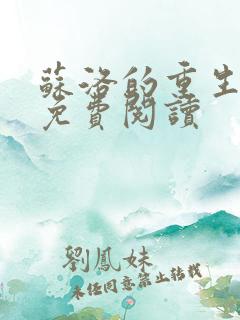 蘇洛的重生
免費閱讀
劉鳳妹
未經同意禁止轉載